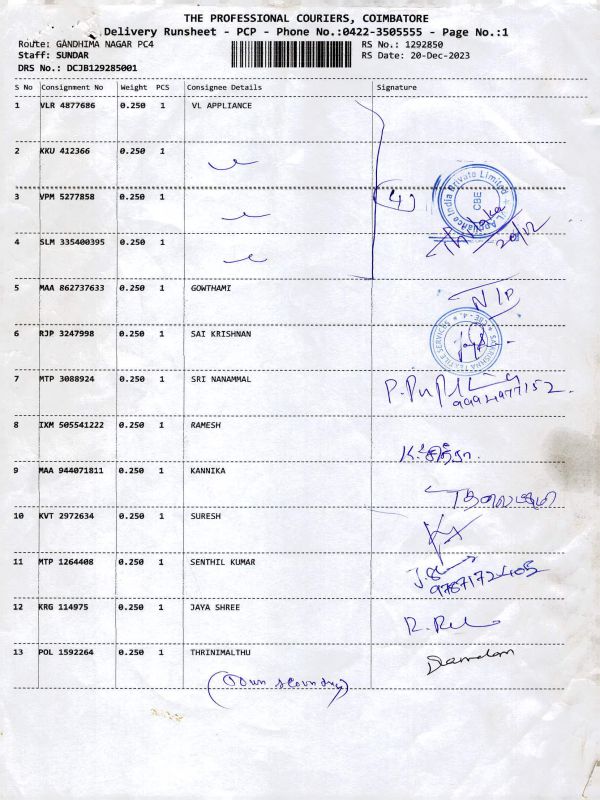 THE PROFESSIONAL COURIERS, COIMBATORE
Delivery Runsheet - PCP - Phone No.:0422-3505555 - Page No.:1
Route: GANDHIMA NAGAR PC4
RS No.: 1292850
Staff: SUNDAR
RS Date: 20-Dec-2023
DRS No.: DCJB129285001
S No Consignment No Weight PCS Consignee Details Signature
1 VLR 4877686 0.250 1 VL APPLIANCE
2 KKU 412366 0.250 1
3 VPM 5277858 0.250 1
4
Appliance India Private Limited
CBE
4 SLM 335400395 0.250 1
20/12
5 MAA 862737633 0.250 1 GOWTHAMI
N/P
6 RJP 3247998 0.250 1 SAI KRISHNAN
7 MTP 3088924 0.250 1 SRI NANAMMAL
9994977152
8 IXM 505541222 0.250 1 RAMESH
9 MAA 944071811 0.250 1 KANNIKA
10 KVT 2972634 0.250 1 SURESH
11 MTP 1264408 0.250 1 SENTHIL KUMAR
9787172405
12 KRG 114975 0.250 1 JAYA SHREE
13 POL 1592264 0.250 1 THRINIMALTHU